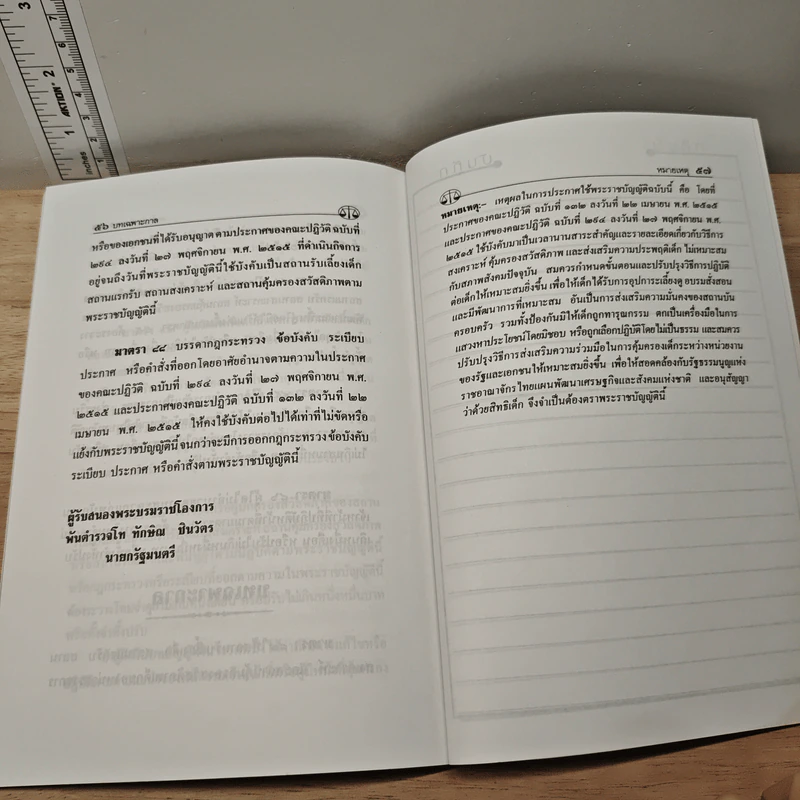 ๕๖ บทเฉพาะกาล
หรือของเอกชนที่ได้รับอนุญาตตามประกาศของคณะปฏิวัติ ฉบับที่
๒๙๔ ลงวันที่ ๒๗ พฤศจิกายน พ.ศ. ๒๕๑๕ ที่ดำเนินกิจการ
อยู่จนถึงวันที่พระราชบัญญัตินี้ใช้บังคับเป็นสถานรับเลี้ยงเด็ก
สถานแรกรับ สถานสงเคราะห์ และสถานคุ้มครองสวัสดิภาพตาม
พระราชบัญญัตินี้
มาตรา ๘๘ บรรดากฎกระทรวง ข้อบังคับ ระเบียบ
ประกาศ หรือคำสั่งที่ออกโดยอาศัยอำนาจตามความในประกาศ
ของคณะปฏิวัติ ฉบับที่ ๒๙๔ ลงวันที่ ๒๗ พฤศจิกายน พ.ศ.
๒๕๑๕ และประกาศของคณะปฏิวัติ ฉบับที่ ๑๓๒ ลงวันที่ ๒๒
เมษายน พ.ศ. ๒๕๑๕ ให้คงใช้บังคับต่อไปได้เท่าที่ไม่ขัดหรือ
แย้งกับพระราชบัญญัตินี้ จนกว่าจะมีการออกกฎกระทรวง ข้อบังคับ
ระเบียบ ประกาศ หรือคำสั่งตามพระราชบัญญัตินี้
ผู้รับสนองพระบรมราชโองการ
พันตำรวจโท ทักษิณ ชินวัตร
นายกรัฐมนตรี
หมายเหตุ ๕๗
หมายเหตุ:- เหตุผลในการประกาศใช้พระราชบัญญัติฉบับนี้ คือ โดยที่
ประกาศของคณะปฏิวัติ ฉบับที่ ๑๓๒ ลงวันที่ ๒๒ เมษายน พ.ศ. ๒๕๑๕
และประกาศของคณะปฏิวัติ ฉบับที่ ๒๙๔ ลงวันที่ ๒๗ พฤศจิกายน พ.ศ.
๒๕๑๕ ใช้บังคับมาเป็นเวลานานสาระสำคัญและรายละเอียดเกี่ยวกับวิธีการ
สงเคราะห์ คุ้มครองสวัสดิภาพ และส่งเสริมความประพฤติเด็ก ไม่เหมาะสม
กับสภาพสังคมปัจจุบัน สมควรกำหนดขั้นตอนและปรับปรุงวิธีการปฏิบัติ
ต่อเด็กให้เหมาะสมยิ่งขึ้น เพื่อให้เด็กได้รับการอุปการะเลี้ยงดู อบรมสั่งสอน
และมีพัฒนาการที่เหมาะสม อันเป็นการส่งเสริมความมั่นคงของสถาบัน
ครอบครัว รวมทั้งป้องกันมิให้เด็กถูกทารุณกรรม ตกเป็นเครื่องมือในการ
แสวงหาประโยชน์โดยมิชอบ หรือถูกเลือกปฏิบัติโดยไม่เป็นธรรม และสมควร
ปรับปรุงวิธีการส่งเสริมความร่วมมือในการคุ้มครองเด็กระหว่างหน่วยงาน
ของรัฐและเอกชนให้เหมาะสมยิ่งขึ้น เพื่อให้สอดคล้องกับรัฐธรรมนูญแห่ง
ราชอาณาจักรไทยแผนพัฒนาเศรษฐกิจและสังคมแห่งชาติ และอนุสัญญา
ว่าด้วยสิทธิเด็ก จึงจำเป็นต้องตราพระราชบัญญัตินี้
inches 1 2 3
AKTION
2 3 4 5 6 7